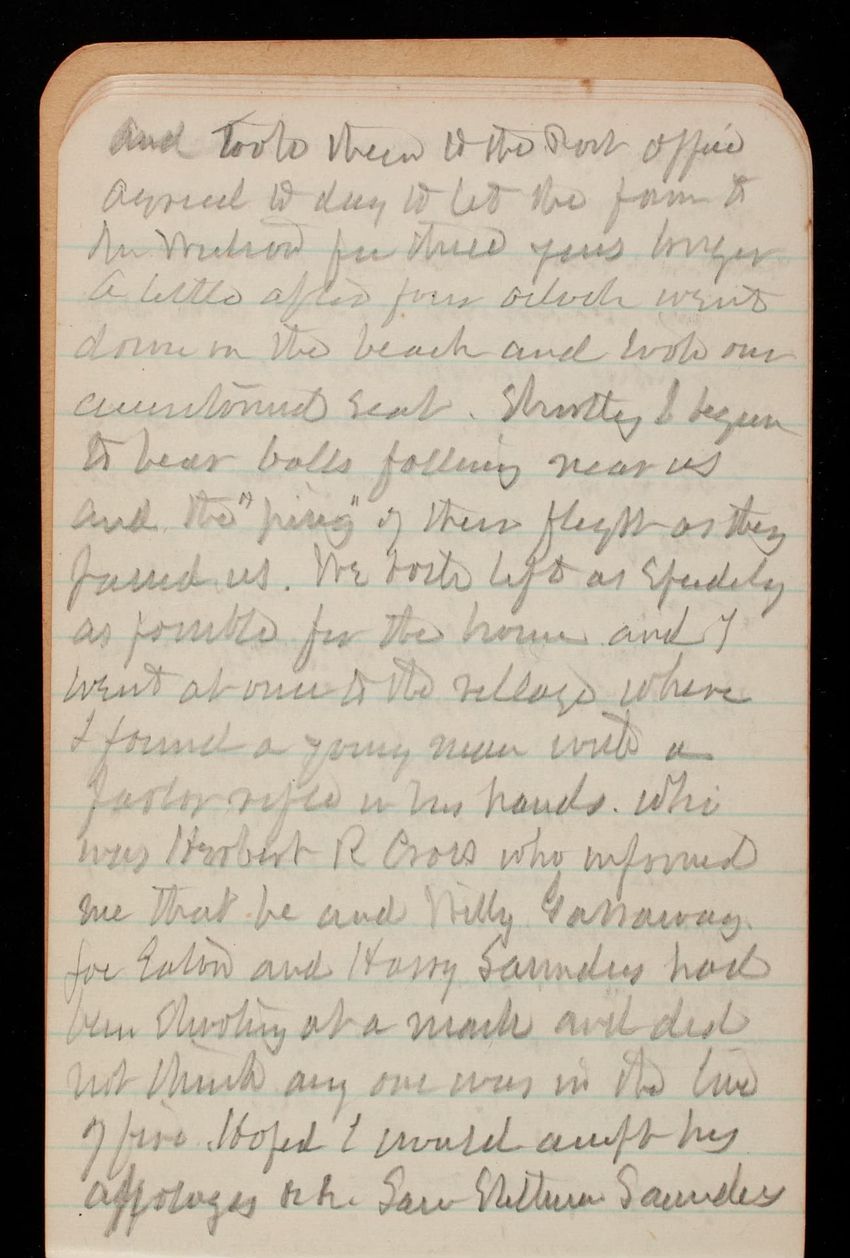 and took them to the Post office
agreed to day to let the farm to
for three years longer
A little after four oclock went
down on the beach and took our
accustomed seat. Shortly I began
to hear balls falling near us
and the "ping" of their flight as they
passed us. We both left as speedily
as possible for the house and I
went at once to the village where
I found a young man with a
parlor rifle in his hands. who
was Herbert R Cross who informed
me that he and Willy Gannaway
Joe Eaton and Harry Saunders had
been shooting at a mark and did
not think any one was in the line
of fire. Hoped I would accept his
appologes &c &c. Saw Saunders